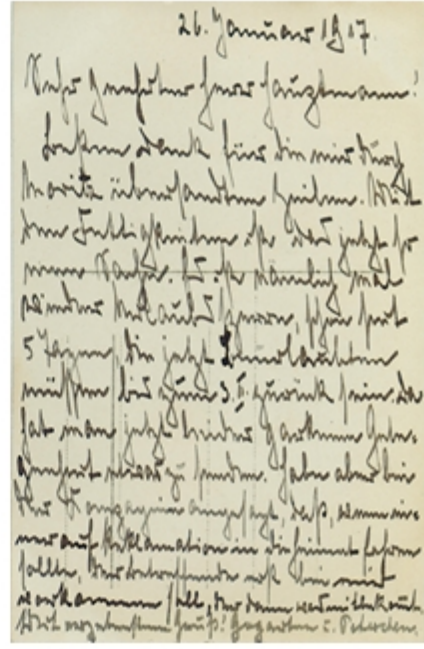 26. Januar 1917.
Sehr geehrter Herr Hauptmann!
Besten Dank für die mir durch
Moritz übersandten Zeilen. Mit
dem ist das jetzt so
eine Sache. Es ist nämlich mal
wieder Urlaubssperre, schon seit
5 Tagen. Die jetzt Beurlaubten
müssen bis zum 3.II. zurück sein. Da
hat man jetzt leider gar keine Gele-
genheit etwas zu senden. Habe aber bei
der angesagt, daß, wenn ein-
mal auf Reklamation in die Heimat fahren
sollte, der betreffende erst bei mir
vorkommen soll, der dann was mitbekommt.
Mit ergebenstem Gruß!